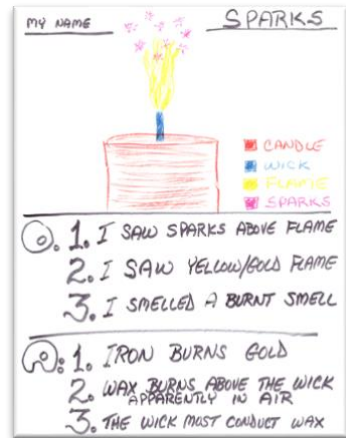 MY NAME
SPARKS
CANDLE
WICK
FLAME
SPARKS
O. 1. I SAW SPARKS ABOVE FLAME
2. I SAW YELLOW/GOLD FLAME
3. I SMELLED A BURNT SMELL
R: 1. IRON BURNS GOLD
2. WAX BURNS ABOVE THE WICK
APPARENTLY IN AIR
3. THE WICK MOST CONDUCT WAX